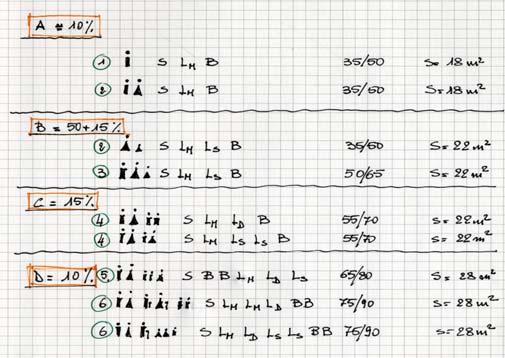 A = 10%
1 S L_M B 35/50 S= 18 m²
2 S L_M B 35/50 S= 18 m²
B = 50+15%
2 S L_M L_S B 35/50 S= 22 m²
3 S L_M L_S B 50/65 S= 22 m²
C = 15%
4 S L_M L_D B 55/70 S= 22 m²
4 S L_M L_S L_S B 55/70 S= 22 m²
D = 10% 5 S B B L_M L_D L_S 65/80 S= 28 m²
6 S L_M L_M L_D BB 75/90 S= 28 m²
6 S L_M L_D L_S L_S BB 75/90 S= 28 m²